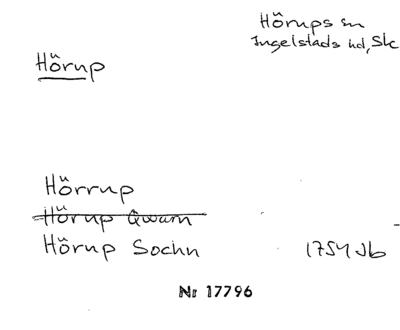 Hörups sn
Ingelstads hd, Sk
Hörup
Hörrup
Hörup Qwarn
Hörup Sochn 1754 Jb
Nr 17796